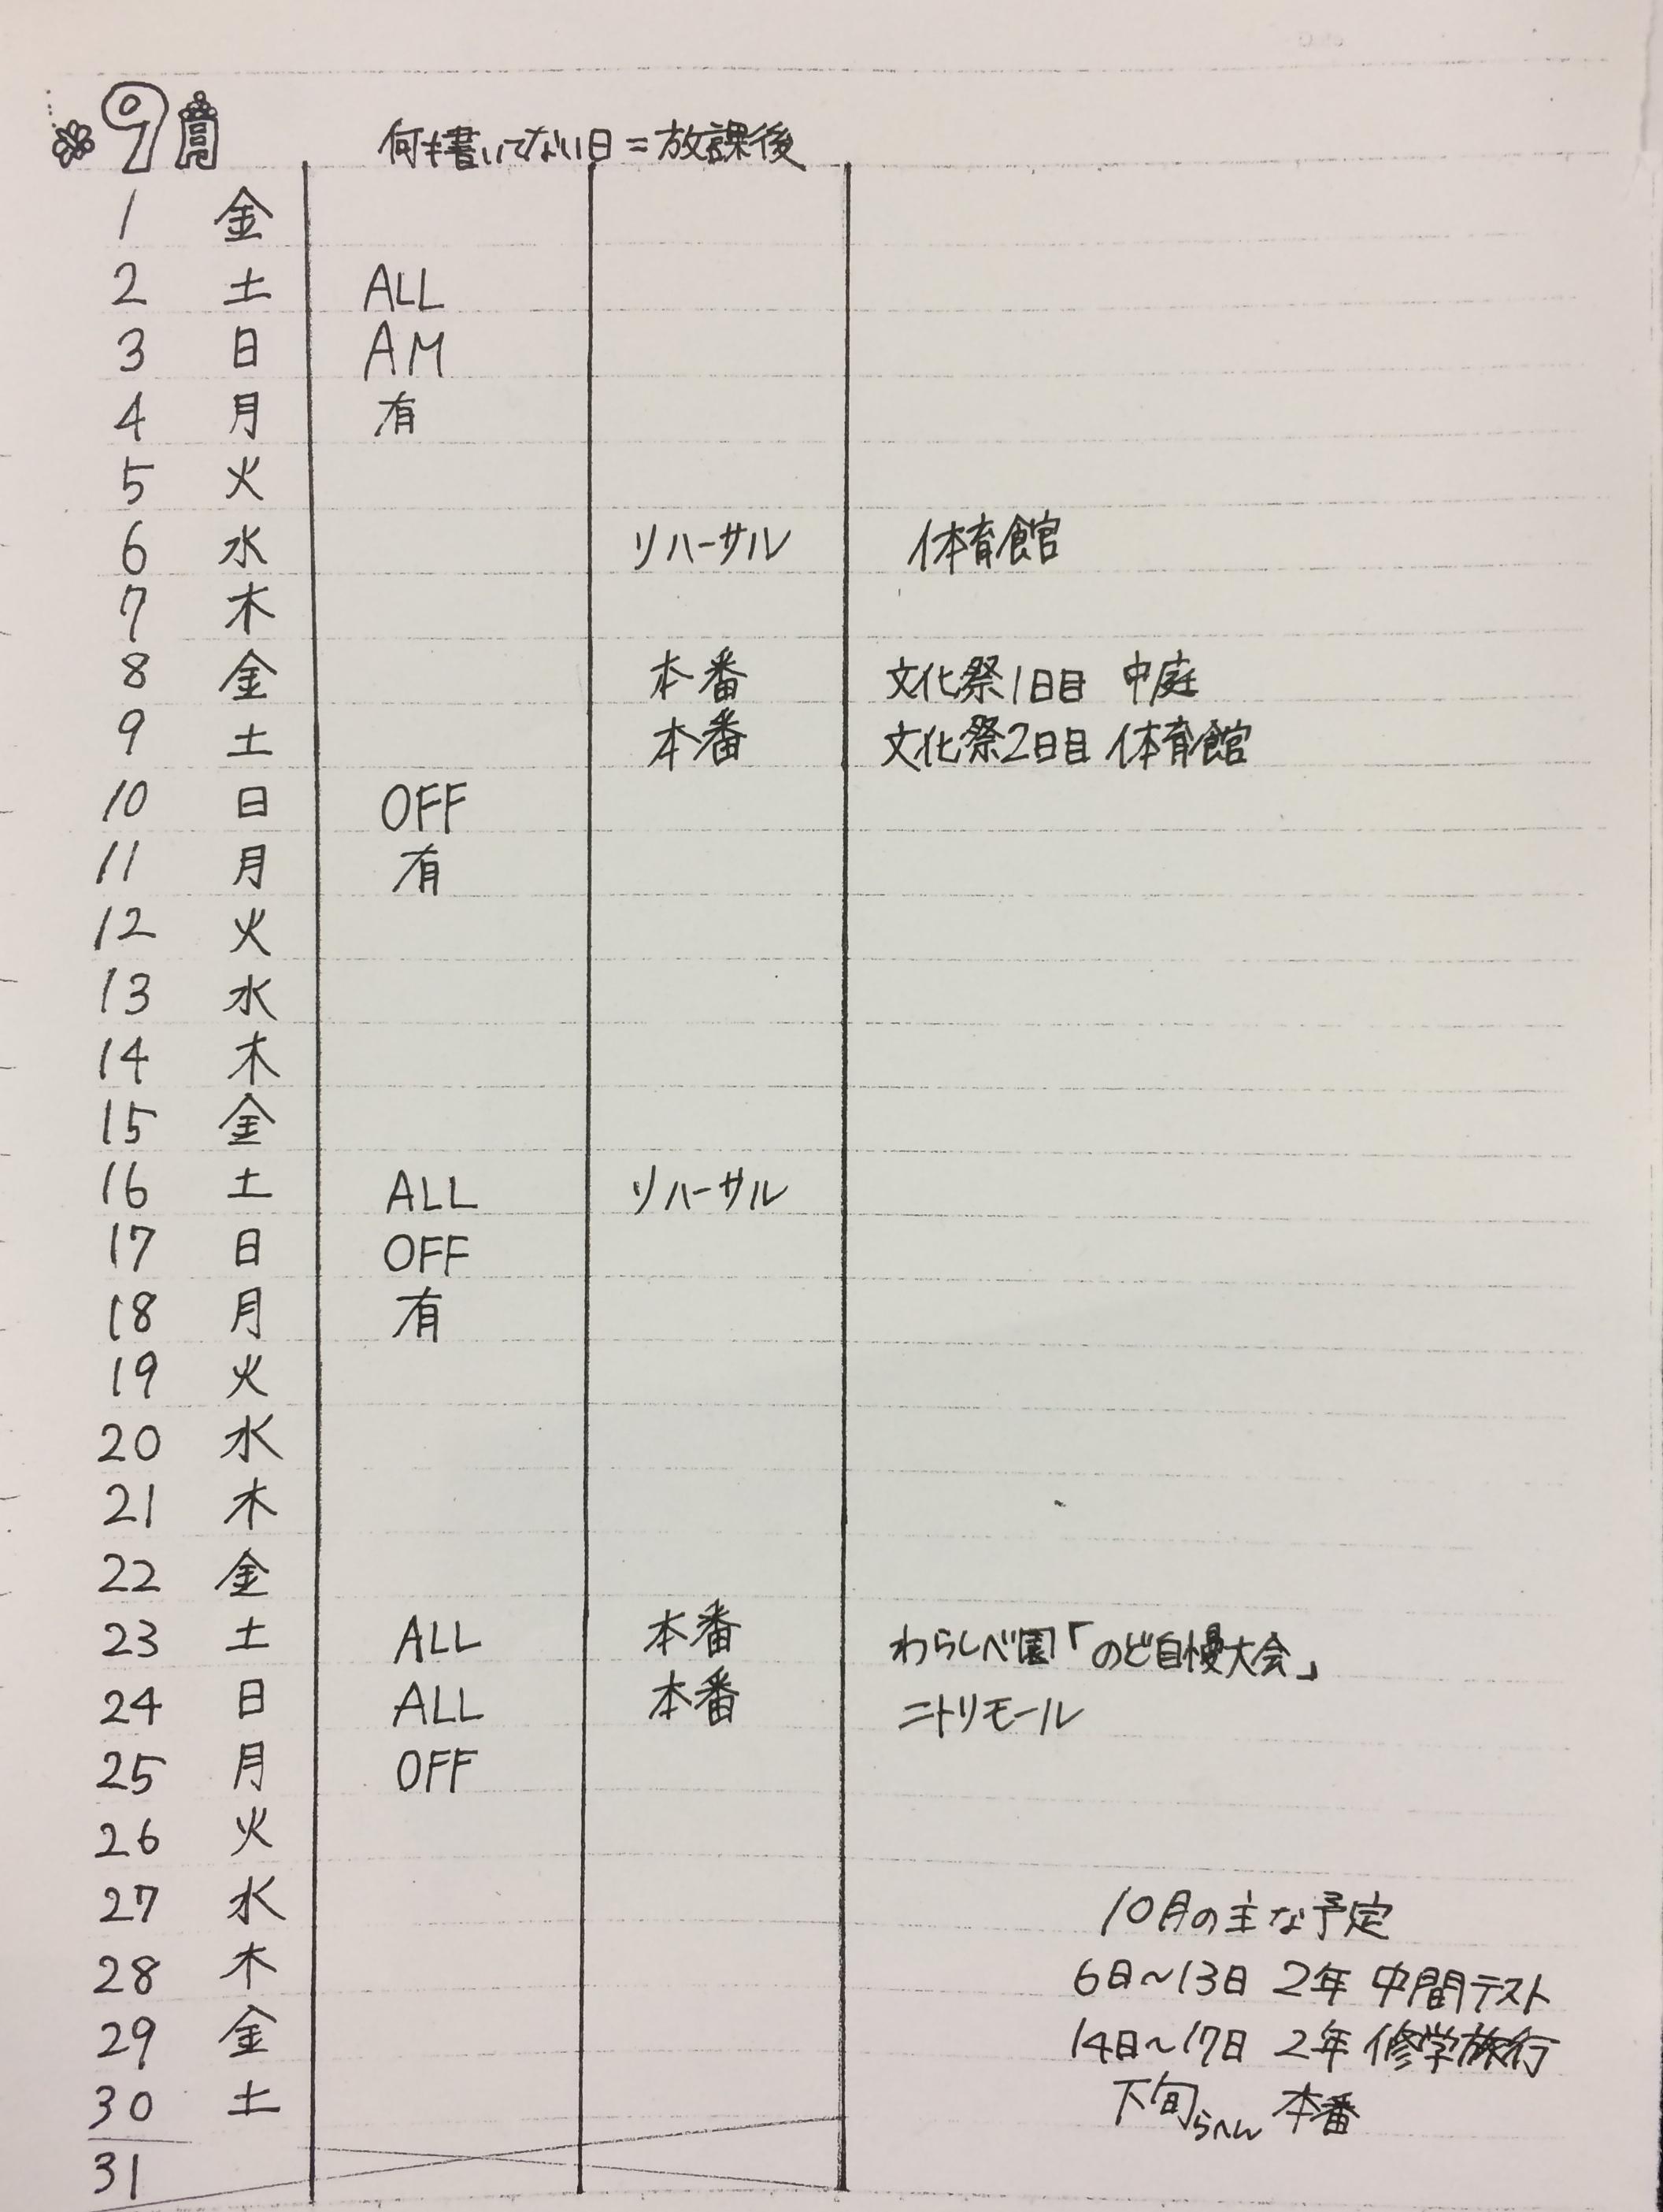 9月
何も書いてない日=放課後
1 金
2 土 ALL
3 日 AM
4 月 有
5 火
6 水 リハーサル 体育館
7 木
8 金 本番 文化祭1日目 中庭
9 土 本番 文化祭2日目 体育館
10 日 OFF
11 月 有
12 火
13 水
14 木
15 金
16 土 ALL リハーサル
17 日 OFF
18 月 有
19 火
20 水
21 木
22 金
23 土 ALL 本番 わらしべ園「のど自慢大会」
24 日 ALL 本番 ニトリモール
25 月 OFF
26 火
27 水
28 木
29 金
30 土
31
10月の主な予定
6日~13日 2年 中間テスト
14日~17日 2年 修学旅行
下旬らへん 本番